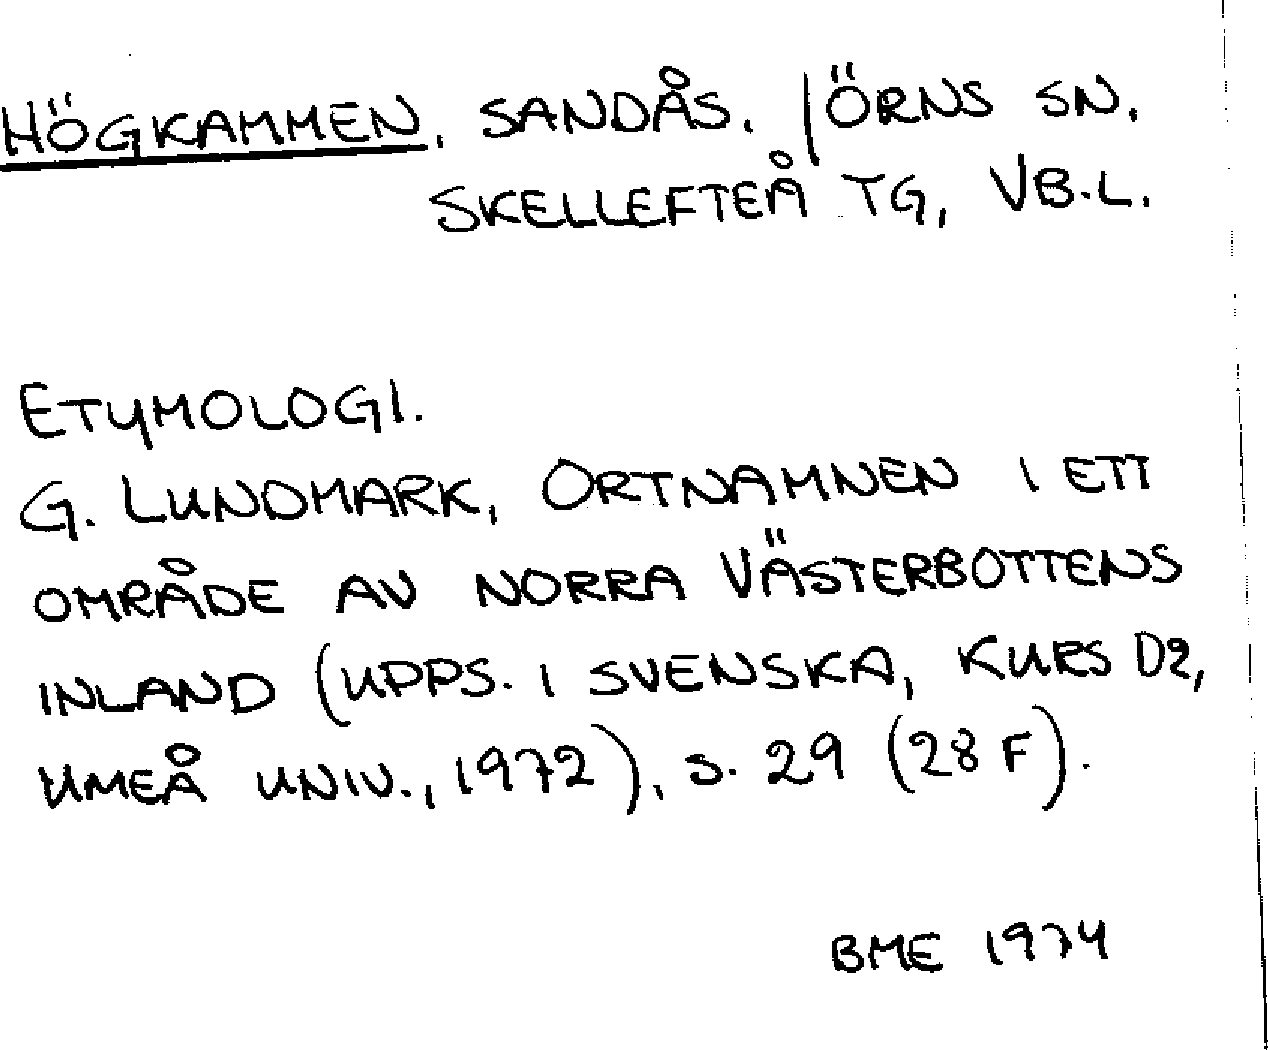 HÖGKAMMEN, SANDÅS, JÖRNS SN,
SKELLEFTEÅ TG, VB.L.
ETYMOLOGI.
G. LUNDMARK, ORTNAMNEN I ETT
OMRÅDE AV NORRA VÄSTERBOTTENS
INLAND (UPPS. I SVENSKA, KURS D2,
UMEÅ UNIV., 1972), S. 29 (28 F).
BME 1974